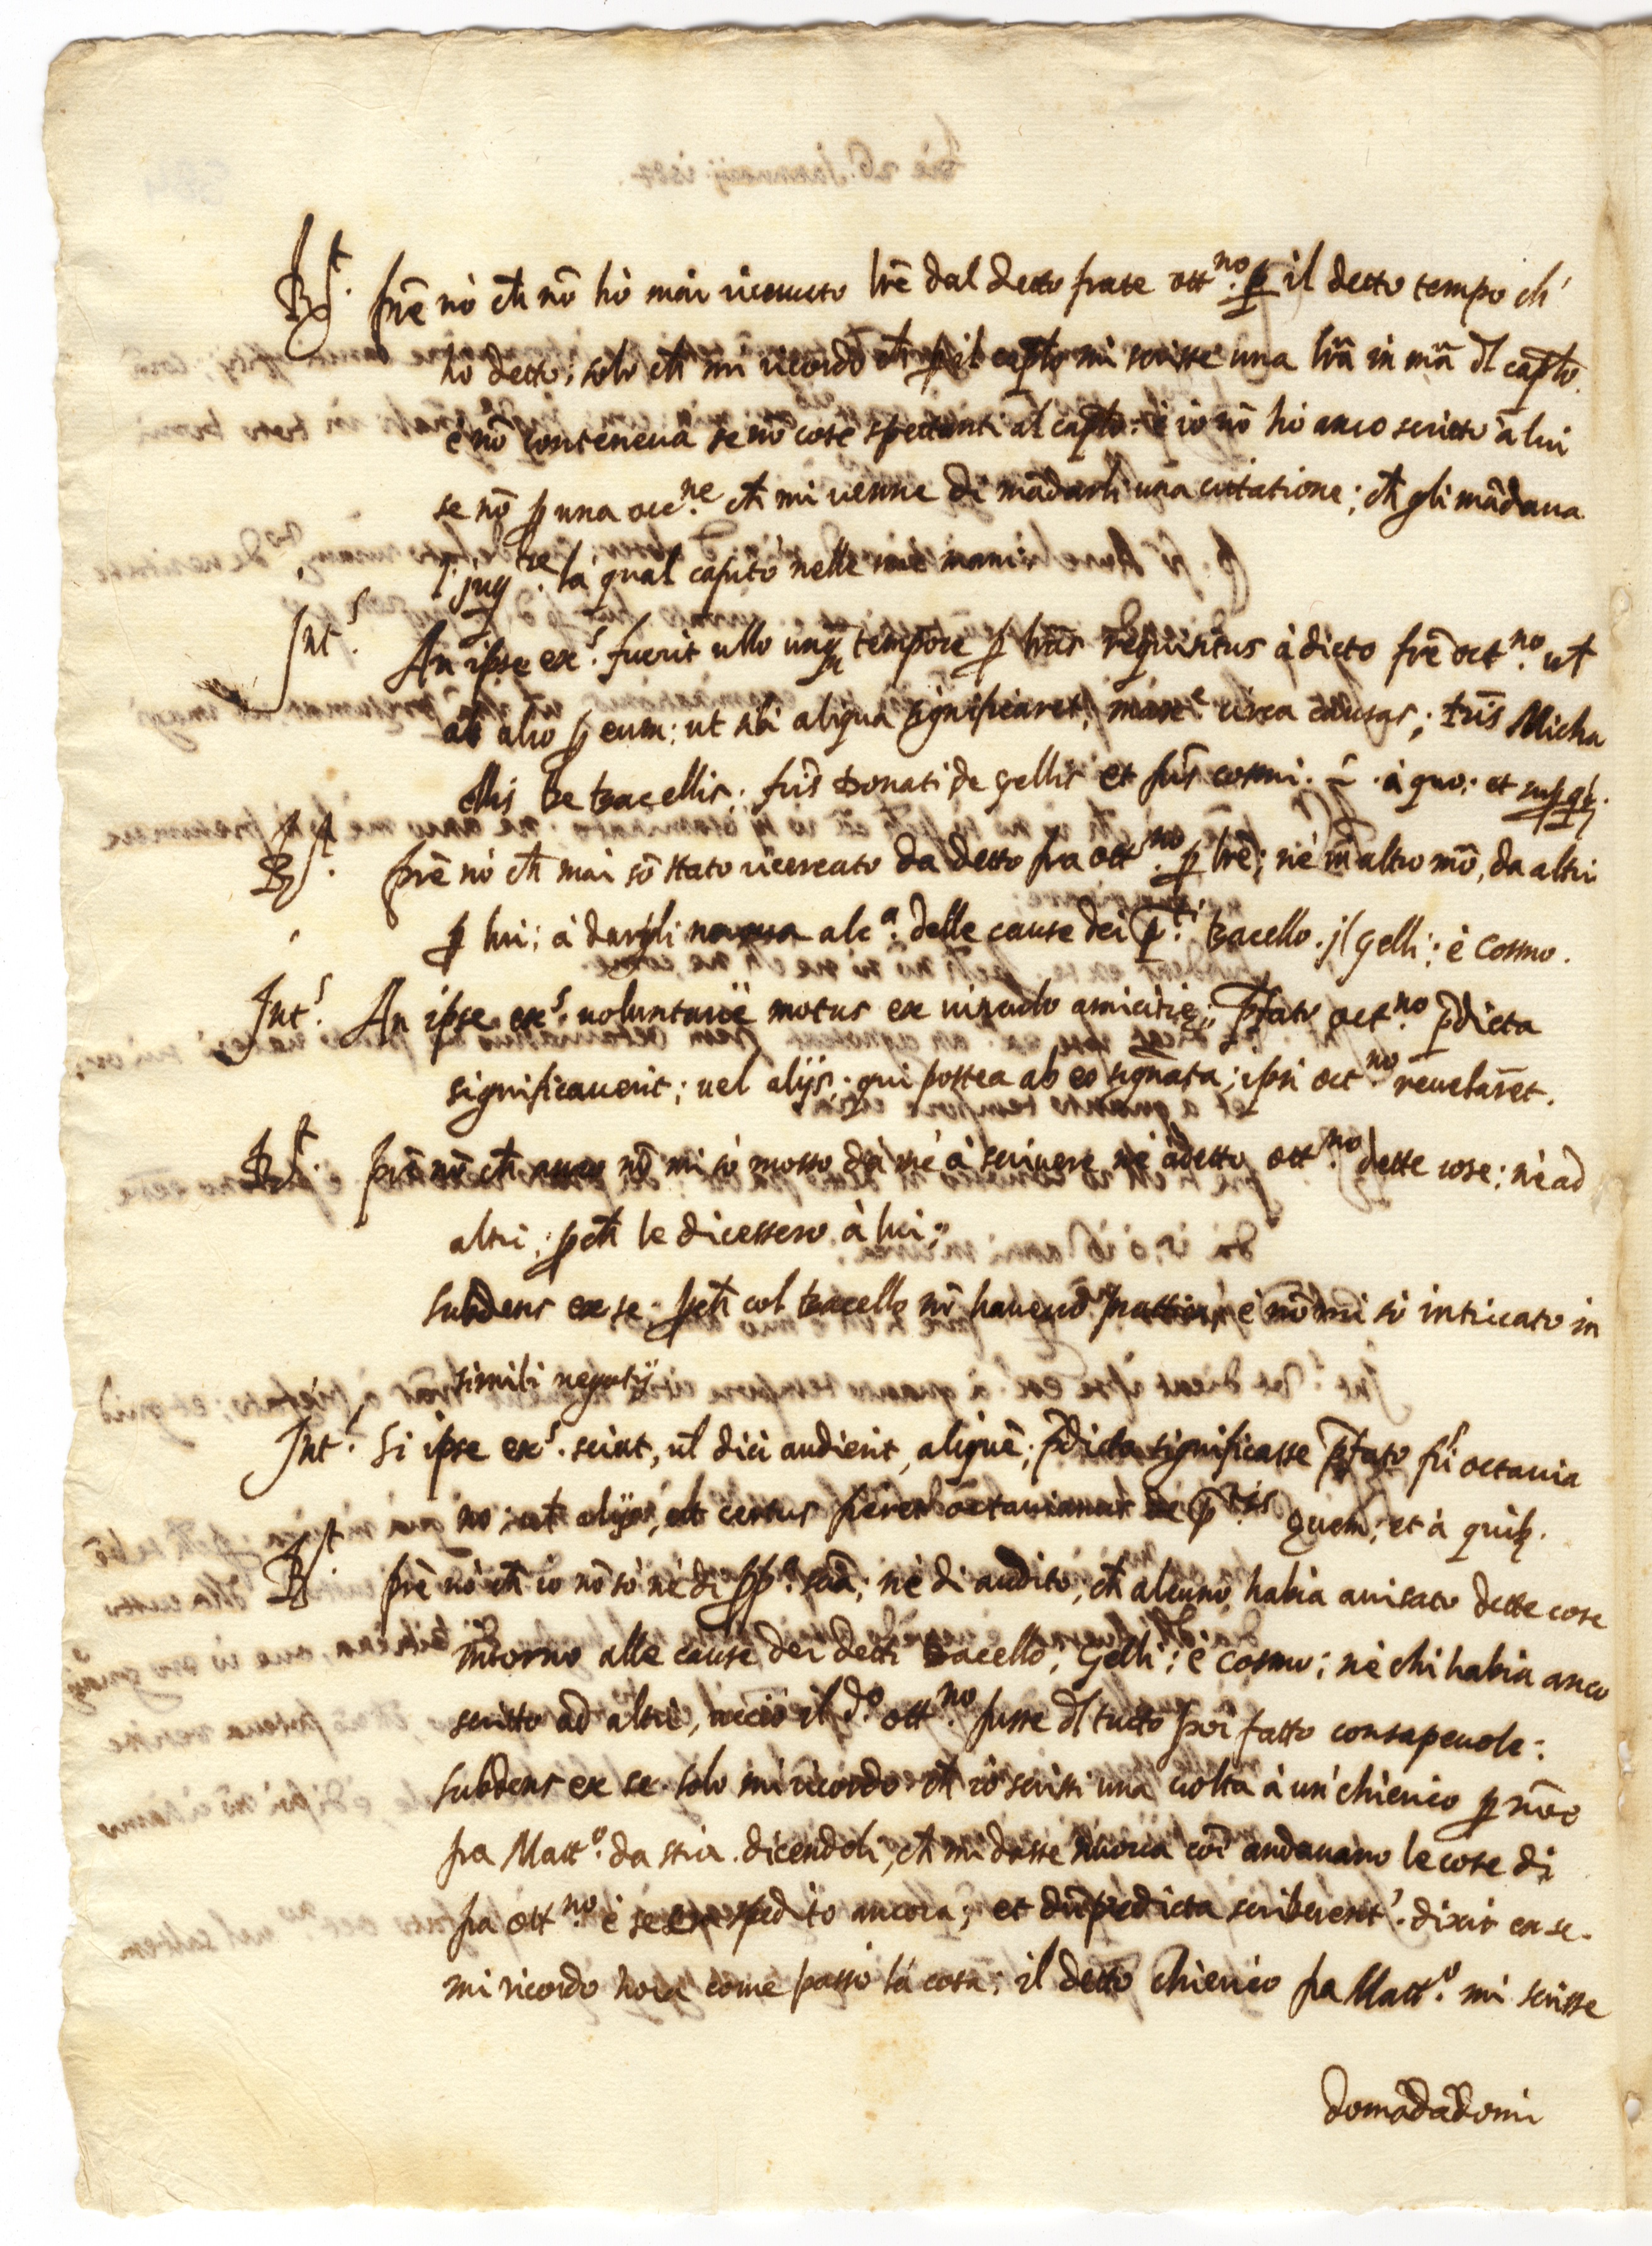 R.t prē nò ch̄ nō hò mai riceuuto lrē dal detto frate ott.no ꝑ il detto tempo ch'
hò detto; solo ch̄ mi ricordo ch̄ ꝑ il capto mi scrisse una lrā in mā dl capto.
e nō conteneua se nō cose spettanti al capto: è io nō hò anco scritto à lui
se nō ꝑ una occ.ne ch̄ mi uenne di mādarli una citatione; ch̄ gli mādaua
la qual capitò nelle mie mani
Int.s An ipse ex.s fuerit ullo unq tempore ꝑ lrās requisitus à dicto frē oct.no ut
ab alio ꝑ eum: ut sibi aliqua significaret; maxe circa causas; fris Micha
elis be bacellis; fris Donati de gellis et fris cosmi. à quo; et
R.t prē nò ch̄ mai sō stato ricercato da detto fra ott.no ꝑ lrē; nè in altro mō, da altri
ꝑ lui; à dargli nouua alc.a delle cause dei p.ti bacello. il gelli; è Cosmo.
Int.s An ipse ex.s uoluntariè motus ex uinculo amicitie; pfato oct.no pdicta
significauerit; uel alijs; qui postea ab eo signata; ipsi oct.no reuelaret.
R.t prē nò ch̄ anco nō mi sò mosso da mè à scriuere nè à detto ott.no dette cose; nè ad
altri; ꝑch̄ le dicessero à lui;
subdens ex se. ꝑch̄ col bacello nō haueuo prattica, è nō mi sò intricato in
simili negotij
Int.s Si ipse ex.s sciat, ul dici audierit, aliquē; pdicta significasse pfato fri octauia
no; ut alijs, ut certus fieret octauianus de p.tis quem; et à quib.
R.t prē nò ch̄ io nō sò nè di pp.a sciā; nè di audito, ch̄ alcuno habia auisato dette cose
intorno alle cause dei detti bacello; Gelli; è Cosmo; nè chi habia anco
scritto ad altri, acciò il d.o ott.no fusse dl tutto poi fatto consapeuole:
subdens ex se. solo mi ricordo ch̄ io scrissi una uolta à un chierico ꝑ nōe
fra Matt.o da stia. dicendoli, ch̄ mi desse nuoua cōe andauano le cose di
fra ott.no è se era spedito ancora; et dū predicta scriberent.r dixit ex se.
mi ricordo hora come passò la cosa; il detto chierico fra Matt.o mi scrisse
domādādomi